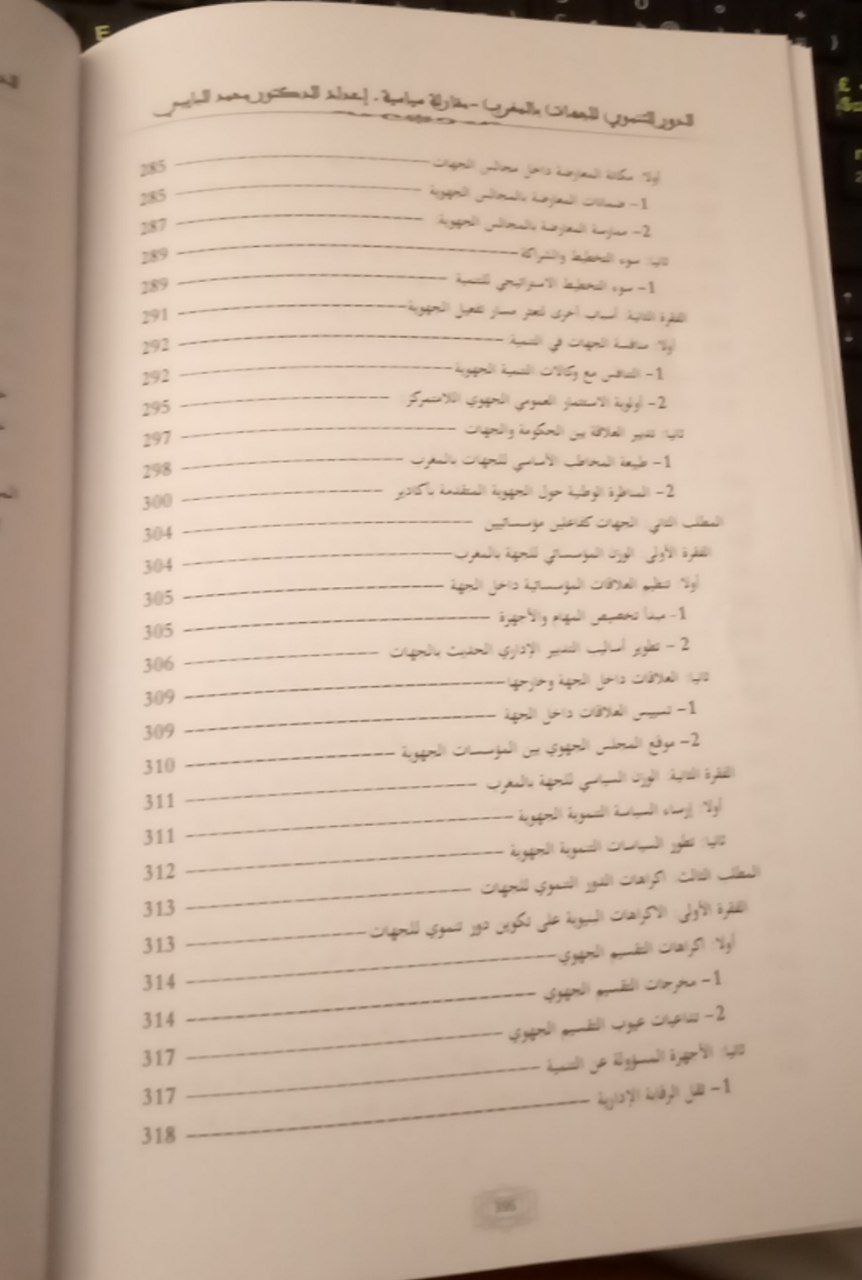 الدور التنموي للجهات بالمغرب -مقاربة سياسية- إعداد الدكتور محمد
أولا: مكانة المعارضة داخل مجالس الجهات 285
1- ضمانات المعارضة بالمجالس الجهوية 285
2- ممارسة المعارضة بالمجالس الجهوية: 287
ثانيا: سوء التخطيط والشراكة 289
1- سوء التخطيط الاستراتيجي للتنمية 289
الفقرة الثانية: أسباب أخرى لتعثر مسار تفعيل الجهوية 291
أولا: منافسة الجهات في التنمية 292
1- التنافس مع وكالات التنمية الجهوية 292
2- أولوية الاستثمار العمومي الجهوي اللامتمركز: 295
ثانيا: تدبير العلاقة بين الحكومة والجهات 297
1- طبيعة المخاطب الأساسي للجهات بالمغرب 298
2- المناظرة الوطنية حول الجهوية المتقدمة بأكادير 300
المطلب الثاني: الجهات كفاعلين مؤسساتيين 304
الفقرة الأولى: الوزن المؤسساتي للجهة بالمغرب 304
أولا: تنظيم العلاقات المؤسساتية داخل الجهة 305
1- مبدأ تخصيص المهام والأجهزة 305
2 - تطوير أساليب التدبير الإداري الحديث بالجهات 306
ثانيا: العلاقات داخل الجهة وخارجها 309
1- تسييس العلاقات داخل الجهة 309
2- موقع المجلس الجهوي بين المؤسسات الجهوية 310
الفقرة الثانية: الوزن السياسي للجهة بالمغرب 311
أولا: إرساء السياسة التنموية الجهوية 311
ثانيا: تطور السياسات التنموية الجهوية 312
المطلب الثالث: اكراهات الدور التنموي للجهات 313
الفقرة الأولى: الاكراهات البنيوية على تكوين دور تنموي للجهات 313
أولا: اكراهات التقسيم الجهوي 314
1- مخرجات التقسيم الجهوي 314
2- تداعيات عيوب التقسيم الجهوي 317
ثانيا: الأجهزة المسؤولة عن التنمية 317
1- ثقل الرقابة الإدارية 318
395